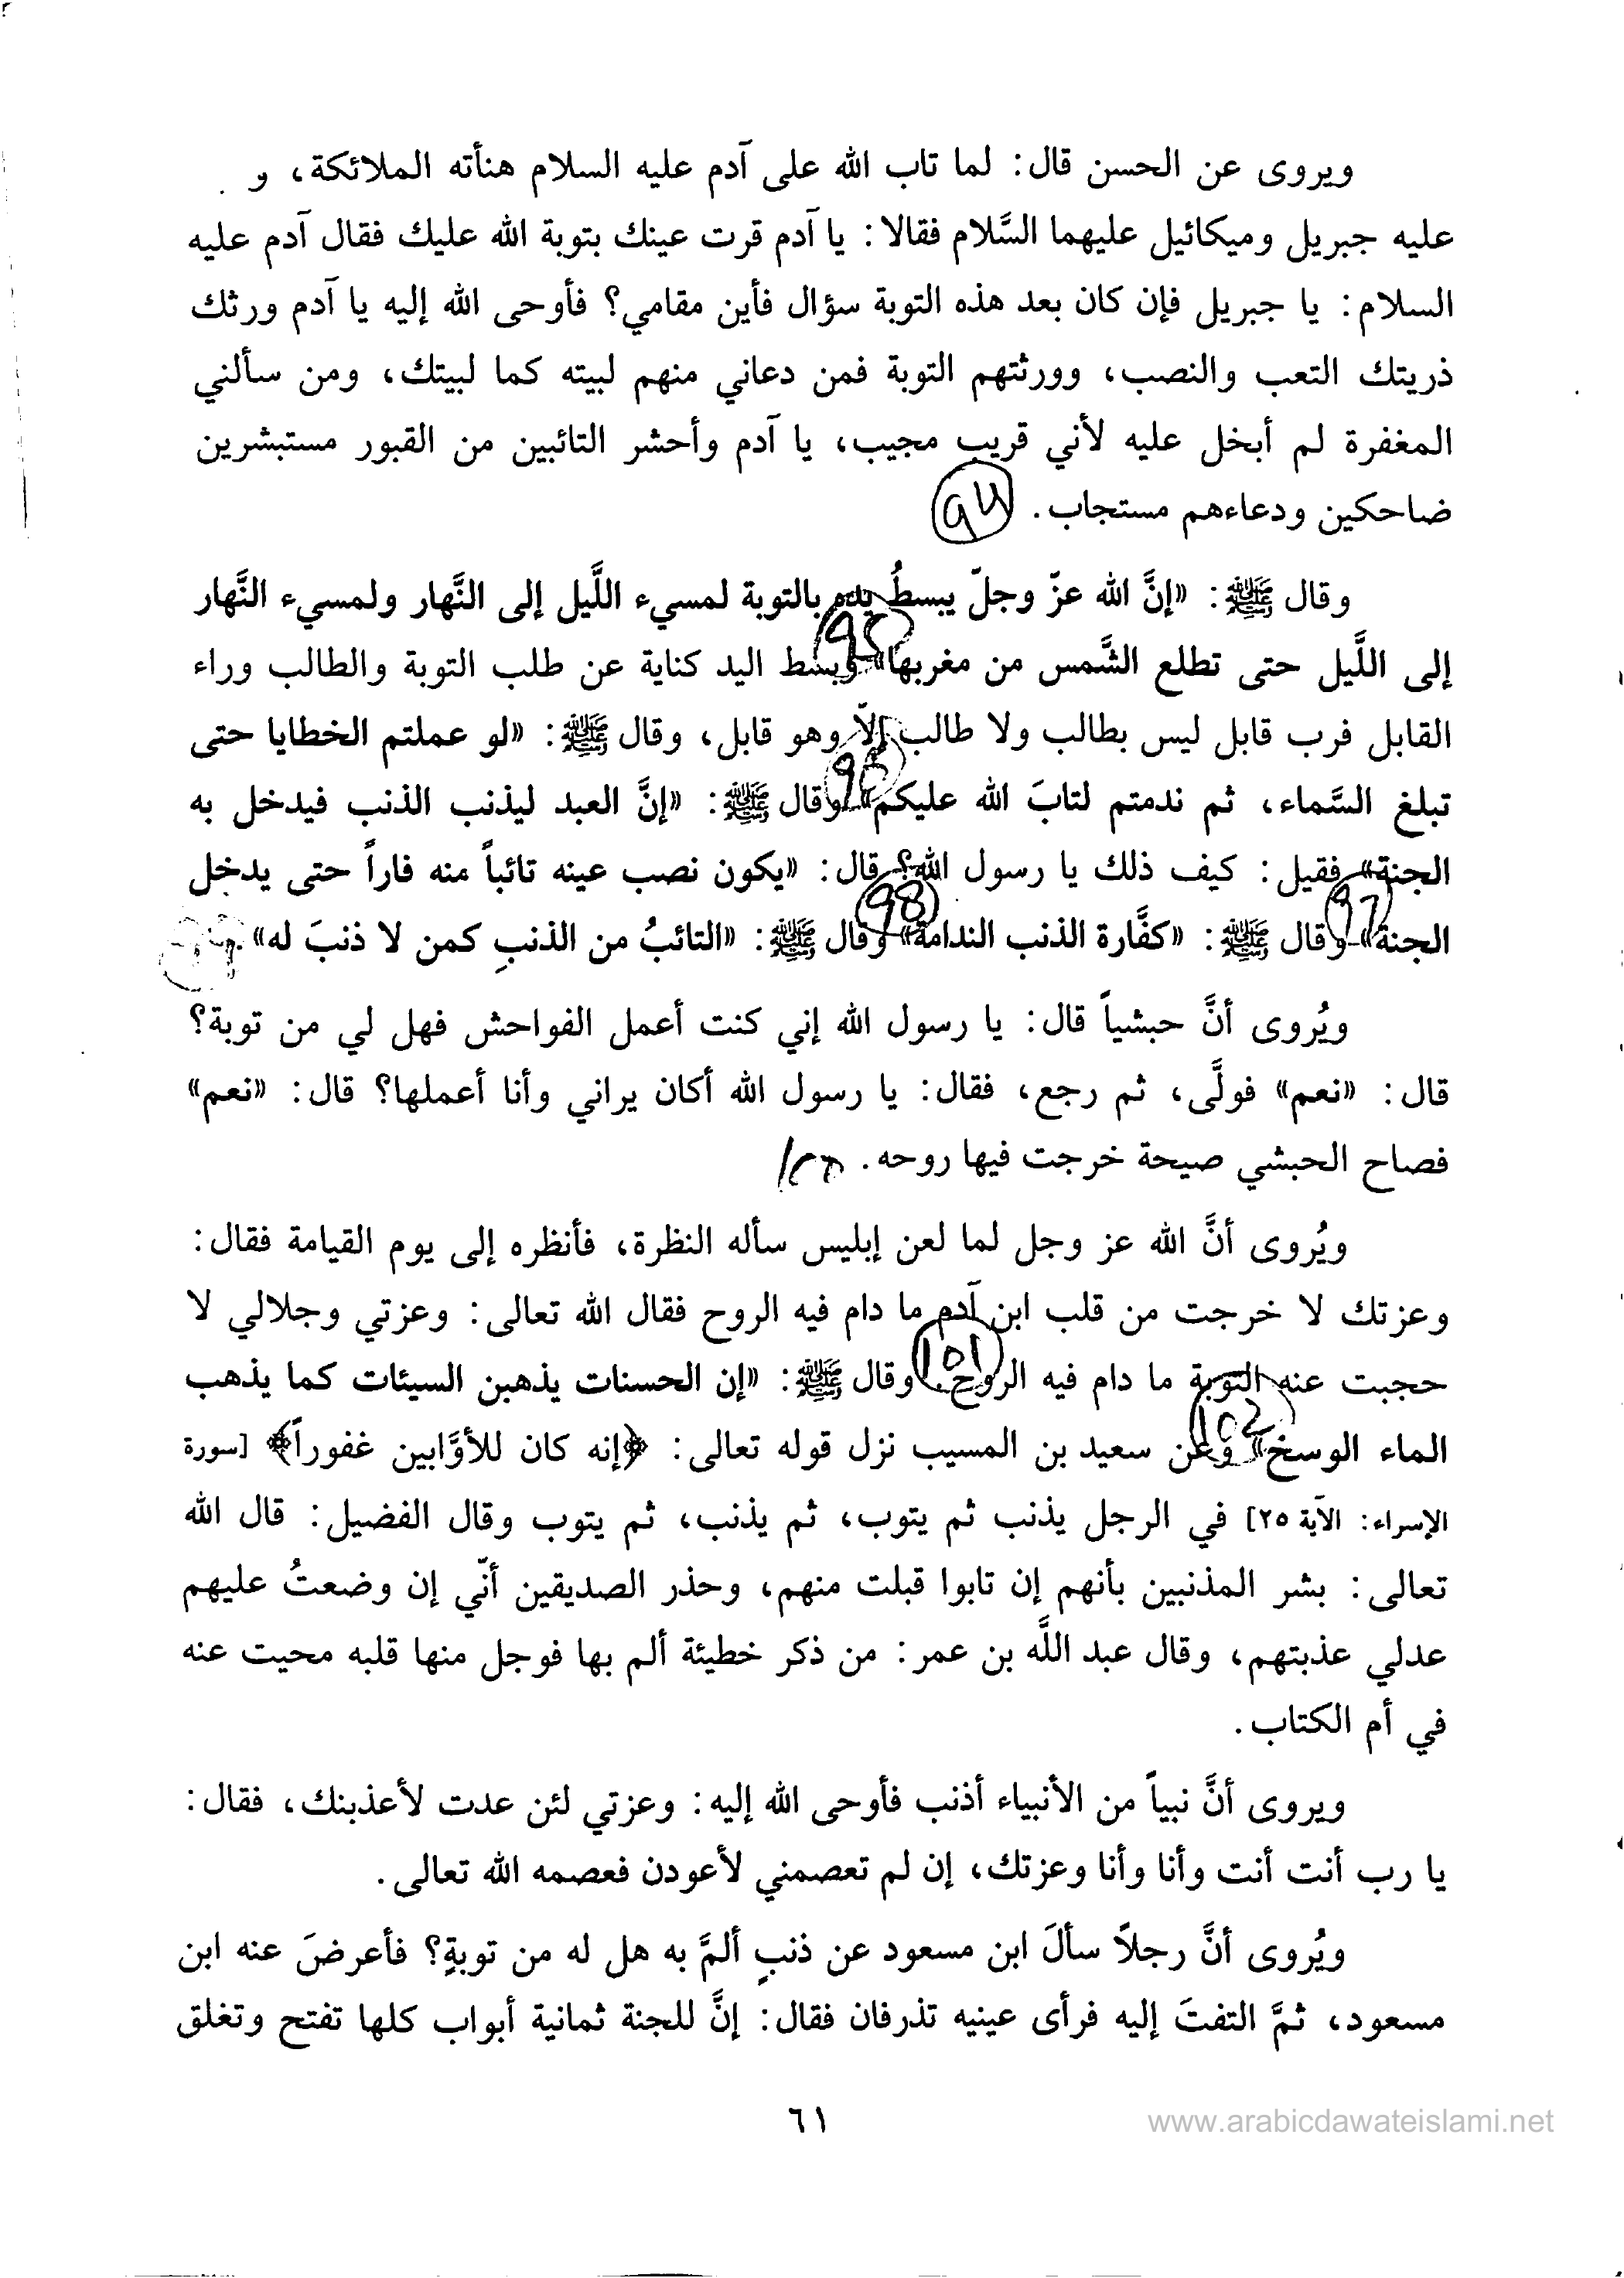 ويروى عن الحسن قال: لما تاب الله على آدم عليه السلام هنأته الملائكة، و
عليه جبريل وميكائيل عليهما السَّلام فقالا: يا آدم قرت عينك بتوبة الله عليك فقال آدم عليه
السلام: يا جبريل فإن كان بعد هذه التوبة سؤال فأين مقامي؟ فأوحى الله إليه يا آدم ورثك
ذريتك التعب والنصب، وورثتهم التوبة فمن دعاني منهم لبيته كما لبيتك، ومن سألني
المغفرة لم أبخل عليه لأني قريب مجيب، يا آدم وأحشر التائبين من القبور مستبشرين
ضاحكين ودعاءهم مستجاب. 94
وقال ﷺ: «إنَّ الله عزّ وجلّ يبسطُ يده بالتوبة لمسيء اللَّيل إلى النَّهار ولمسيء النَّهار
إلى اللَّيل حتى تطلع الشَّمس من مغربها» 95 وبسط اليد كناية عن طلب التوبة والطالب وراء
القابل فرب قابل ليس بطالب ولا طالب إلاّ وهو قابل، وقال ﷺ: «لو عملتم الخطايا حتى
تبلغ السَّماء، ثم ندمتم لتابَ الله عليكم» 96 وقال ﷺ: «إنَّ العبد ليذنب الذنب فيدخل به
الجنة» فقيل: كيف ذلك يا رسول الله؟ قال: «يكون نصب عينه تائباً منه فاراً حتى يدخل
الجنة» 97 وقال ﷺ: «كفَّارة الذنب الندامة» 98 وقال ﷺ: «التائبُ من الذنبِ كمن لا ذنبَ له».
ويُروى أنَّ حبشياً قال: يا رسول الله إني كنت أعمل الفواحش فهل لي من توبة؟
قال: «نعم» فولَّى، ثم رجع، فقال: يا رسول الله أكان يراني وأنا أعملها؟ قال: «نعم»
فصاح الحبشي صيحة خرجت فيها روحه. 100
ويُروى أنَّ الله عز وجل لما لعن إبليس سأله النظرة، فأنظره إلى يوم القيامة فقال:
وعزتك لا خرجت من قلب ابن آدم ما دام فيه الروح فقال الله تعالى: وعزتي وجلالي لا
حجبت عنه التوبة ما دام فيه الروح. 101 وقال ﷺ: «إن الحسنات يذهبن السيئات كما يذهب
الماء الوسخ» 102 وعن سعيد بن المسيب نزل قوله تعالى: ﴿إنه كان للأوَّابين غفوراً﴾ [سورة
الإسراء: الآية ٢٥] في الرجل يذنب ثم يتوب، ثم يذنب، ثم يتوب وقال الفضيل: قال الله
تعالى: بشر المذنبين بأنهم إن تابوا قبلت منهم، وحذر الصديقين أنّي إن وضعتُ عليهم
عدلي عذبتهم، وقال عبد اللَّه بن عمر: من ذكر خطيئة ألم بها فوجل منها قلبه محيت عنه
في أم الكتاب.
ويروى أنَّ نبياً من الأنبياء أذنب فأوحى الله إليه: وعزتي لئن عدت لأعذبنك، فقال:
يا رب أنت أنت وأنا وأنا وعزتك، إن لم تعصمني لأعودن فعصمه الله تعالى.
ويُروى أنَّ رجلاً سألَ ابن مسعود عن ذنبٍ ألمَّ به هل له من توبةٍ؟ فأعرضَ عنه ابن
مسعود، ثمَّ التفتَ إليه فرأى عينيه تذرفان فقال: إنَّ للجنة ثمانية أبواب كلها تفتح وتغلق
٦١
www.arabicdawateislami.net